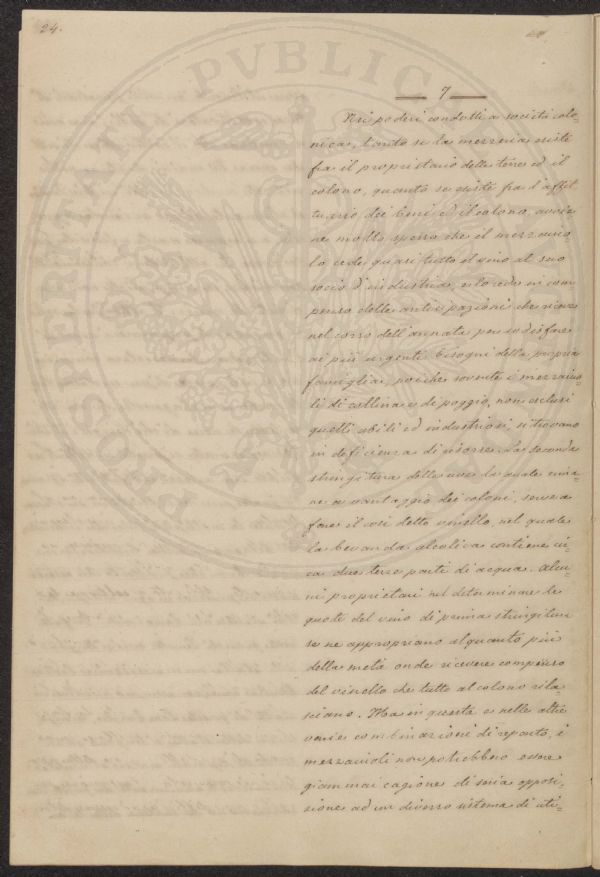 24.
7
Nei poderi condotti a società colo=
nica, tanto se la mezzeria esiste
fra il proprietario delle terre ed il
colono, quanto se esiste fra l'affit=
tuario dei beni ed il colono, avvie=
ne molto spesso che il mezzaiuo=
lo cede quasi tutto il vino al suo
socio d'industria, e lo cede in com
penso delle anticipazioni che riceve
nel corso dell'annata per sodisfare
ai più urgenti bisogni della propria
famiglia, poichè sovente i mezzaiuo=
li di collina e di poggio, non esclusi
quelli abili ed industriosi, si trovano
in deficienza di risorse. La seconda
stringitura delle uve la quale rima=
ne a vantaggio dei coloni, serve a
fare il così detto vinello, nel quale
la bevanda alcolica contiene cir=
ca due terze parti di acqua. Alcu=
ni proprietari nel determinare le
quote del vino di prima stringitura
se ne appropriano alquanto più
della metà onde ricevere compenso
del vinello che tutto al colono rila=
sciano. Ma in questa e nelle altre
varie combinazioni di reparto, i
mezzaiuoli non potrebbero essere
giammai cagione di seria opposi=
zione ad un diverso sistema di uti=
PROSPERITATI PVBLICAE